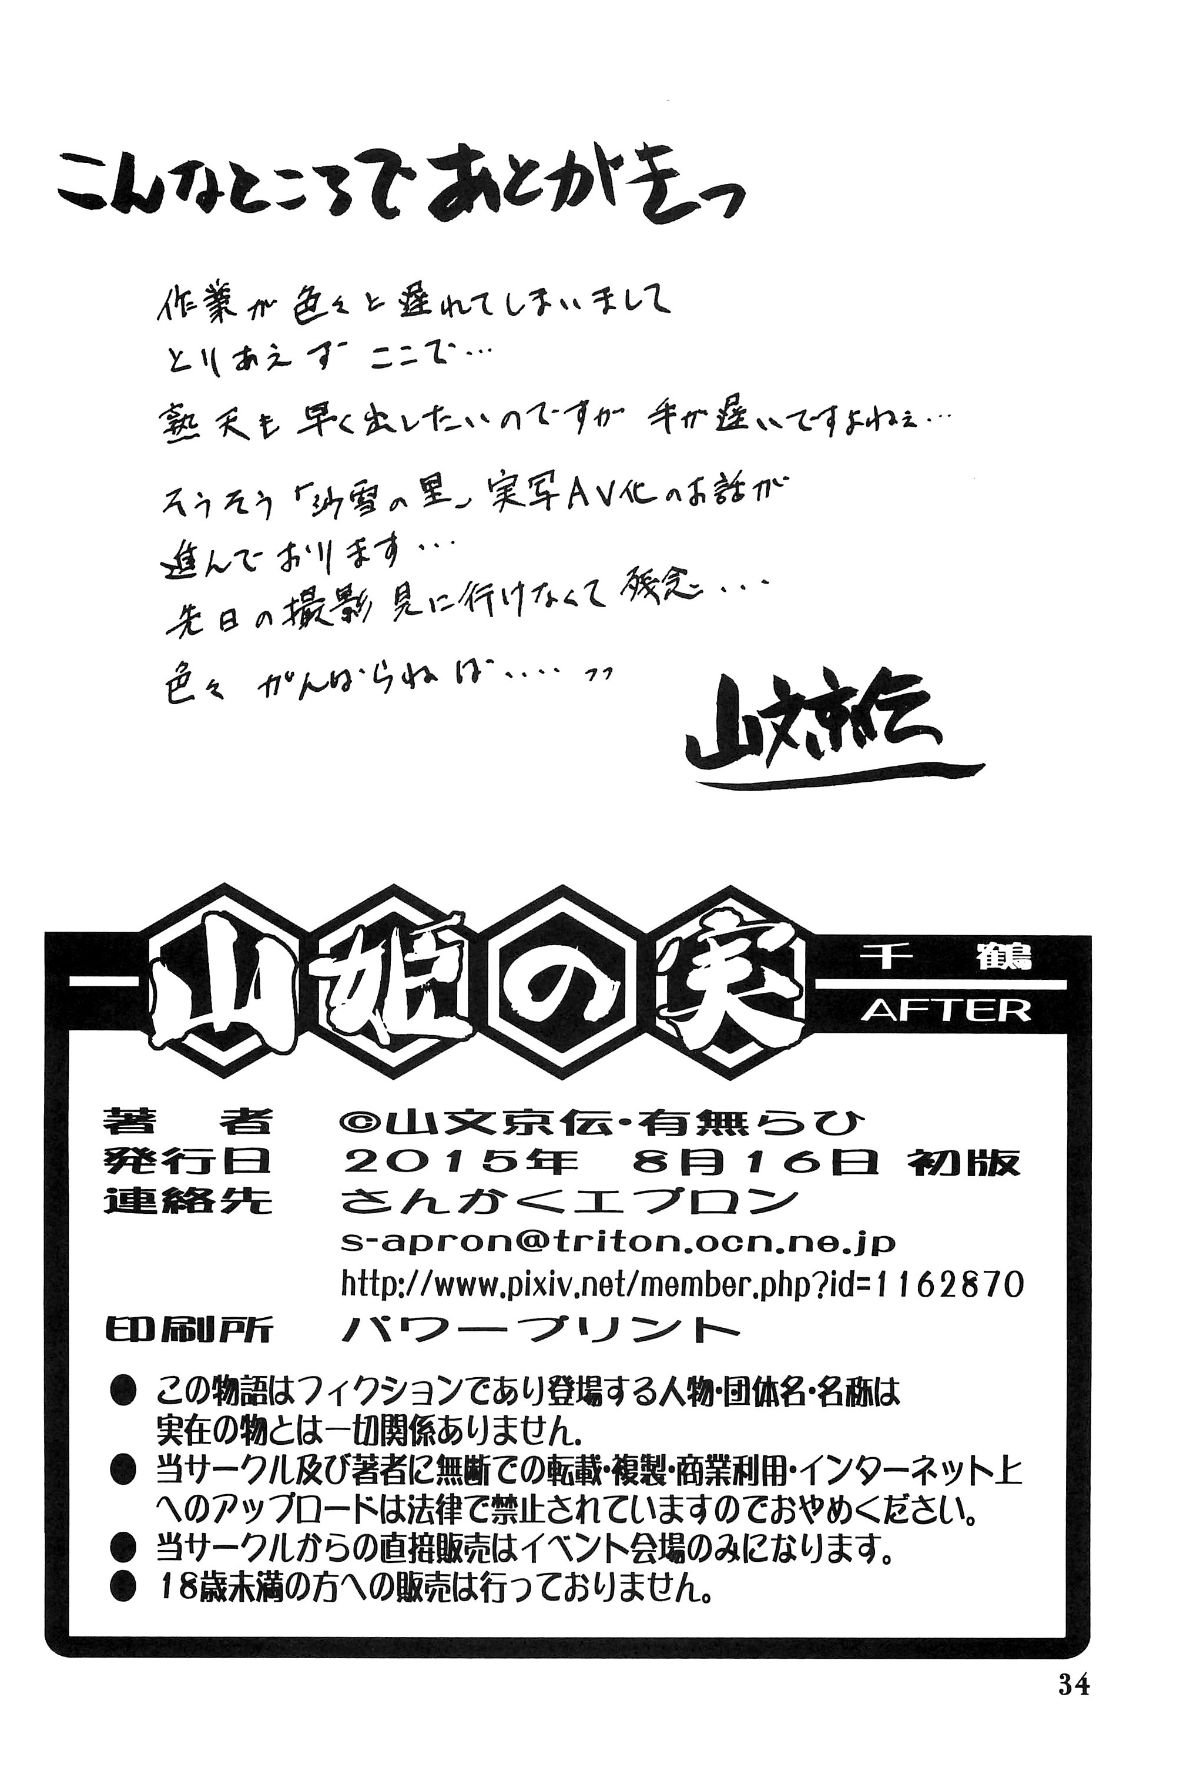 こんなところであとがきっ
作業が色々と遅れてしまいまして
とりあえず ここで…
熟天も早く出したいのですが 手が遅いですよねぇ…
そうそう「沙雪の里」実写AV化のお話が
進んでおります…
先日の撮影見に行けなくて残念…
色々 がんばらねば….っっ
山文京伝
山姫の実
千鶴
AFTER
著者 ©山文京伝・有無らひ
発行日 2015年 8月16日 初版
連絡先 さんかくエプロン
s-apron@triton.ocn.ne.jp
http://www.pixiv.net/member.php?id=1162870
印刷所 パワープリント
● この物語はフィクションであり登場する人物・団体名・名称は
実在の物とは一切関係ありません.
● 当サークル及び著者に無断での転載・複製・商業利用・インターネット上
へのアップロードは法律で禁止されていますのでおやめください。
● 当サークルからの直接販売はイベント会場のみになります。
● 18歳未満の方への販売は行っておりません。
34